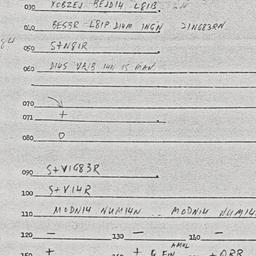 030 YOBZEJ BEJDI4 L8IB.
040 BES3R L8IP DI4M INGN 2ING83RN
050 S+N8IR
060 DI4S VRIB I4N IS MAN
070
071 +
080 O
090 S+VIG83R
100 S+VI4R
110 MODNI4 NUMI4N .. MODNI4 NUMI4
120 — 130 — 140 —
AMOL
150 + + G EIN + ORR